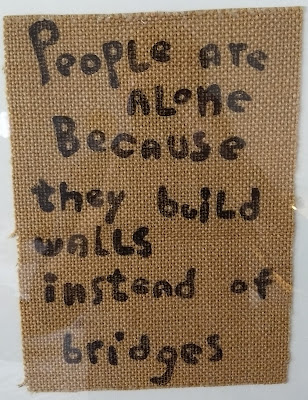 People are
alone
Because
they build
walls
instead of
bridges